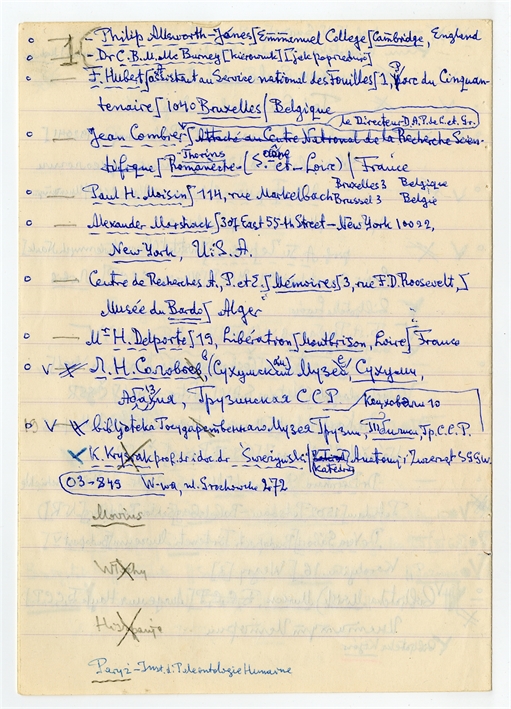 - Philip Allsworth-Jones [Emmanuel College] Cambridge, England
- Dr C.B.M. Mc Burney [kierownik] [jak poprzednio]
- F. Hubert [assistant au Service national des Fouilles] 1, Parc du Cinquan-
tenaire] 1040 Bruxelles/ Belgique
le Directeur D.A.P. de C. et Gr.
- Jean Combier [Attaché au Centre National de la Recherche Scien-
tifique] Romanèche-Thorins (S. et - Loire) / France
Paul H. Moisin] 114, rue Markelbach Bruxelles 3 Belgique
Brussel 3 België
Alexander Marshack] 307 East 55-th Street - New York 10022,
New York, U.S.A.
Centre de Recherches A., P. et E.] Mémoires] 3, rue F.D. Roosevelt,]
Musée du Bardo] Alger
Mr H. Delporte] 19, Libération] Montbrison, Loire] France
V Л.Н. Соловьев, (Сухумский Музей), Сухуми,
Абхазия, Грузинская ССР
V Biblioteka Государственного Музея Грузии, Тбилиси Гр.С.С.Р.
K. prof. dr i doc. dr Anatomji Zwierząt SGGW.
Katedra
03-849 W-wa, ul. Grochowska 272
Movius
Włochy
Hiszpanja
Paryż - Inst. d. Paléontologie Humaine